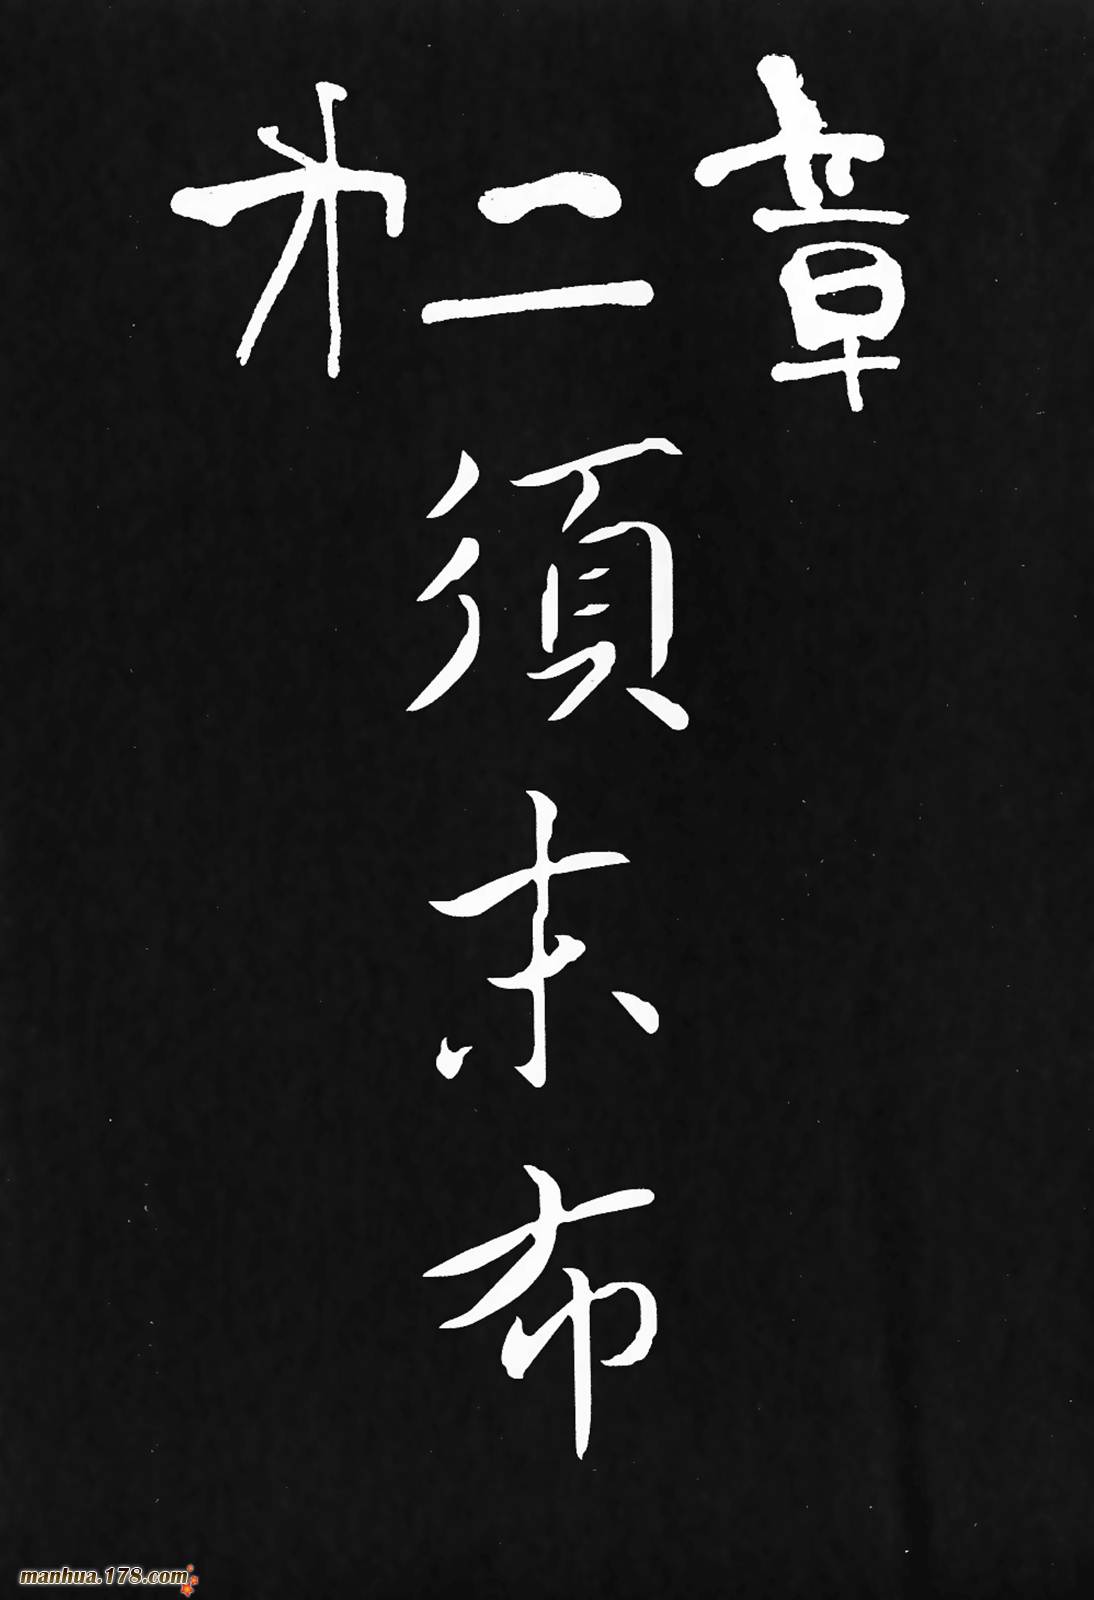 第二章
須末布
manhua.178.com